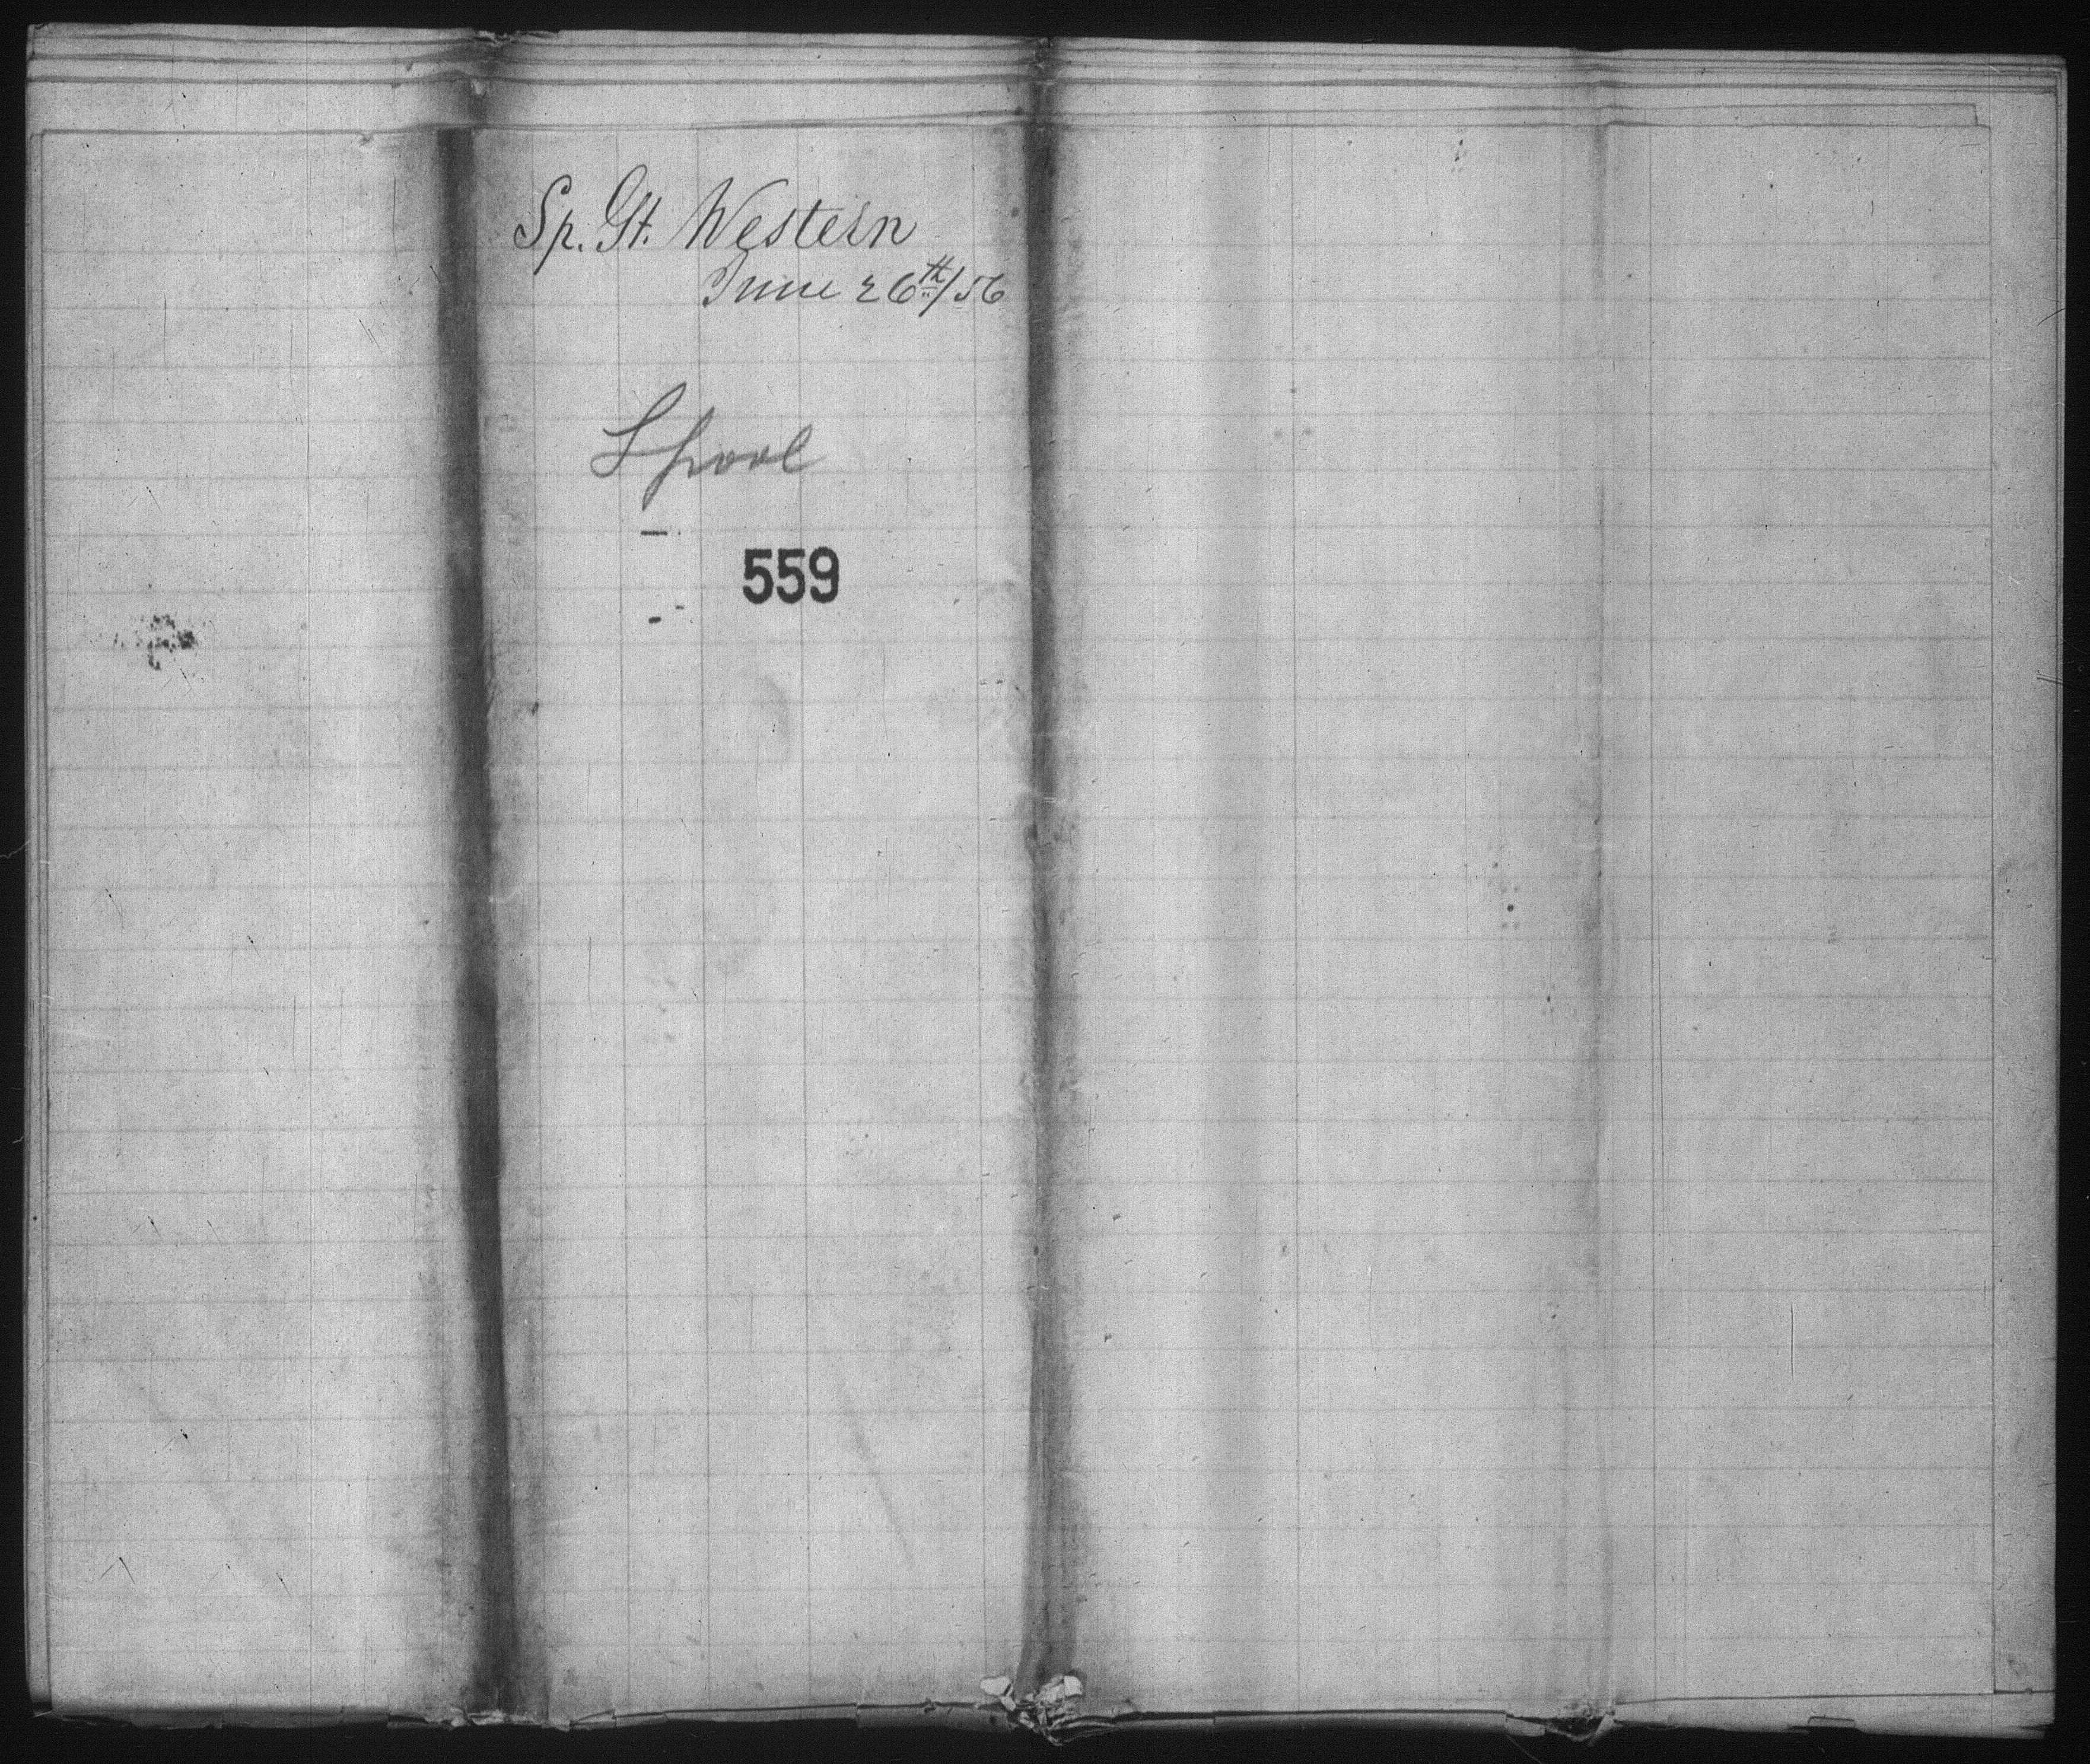 Sp. Gt. Western
June 26th/56
Lpool
559